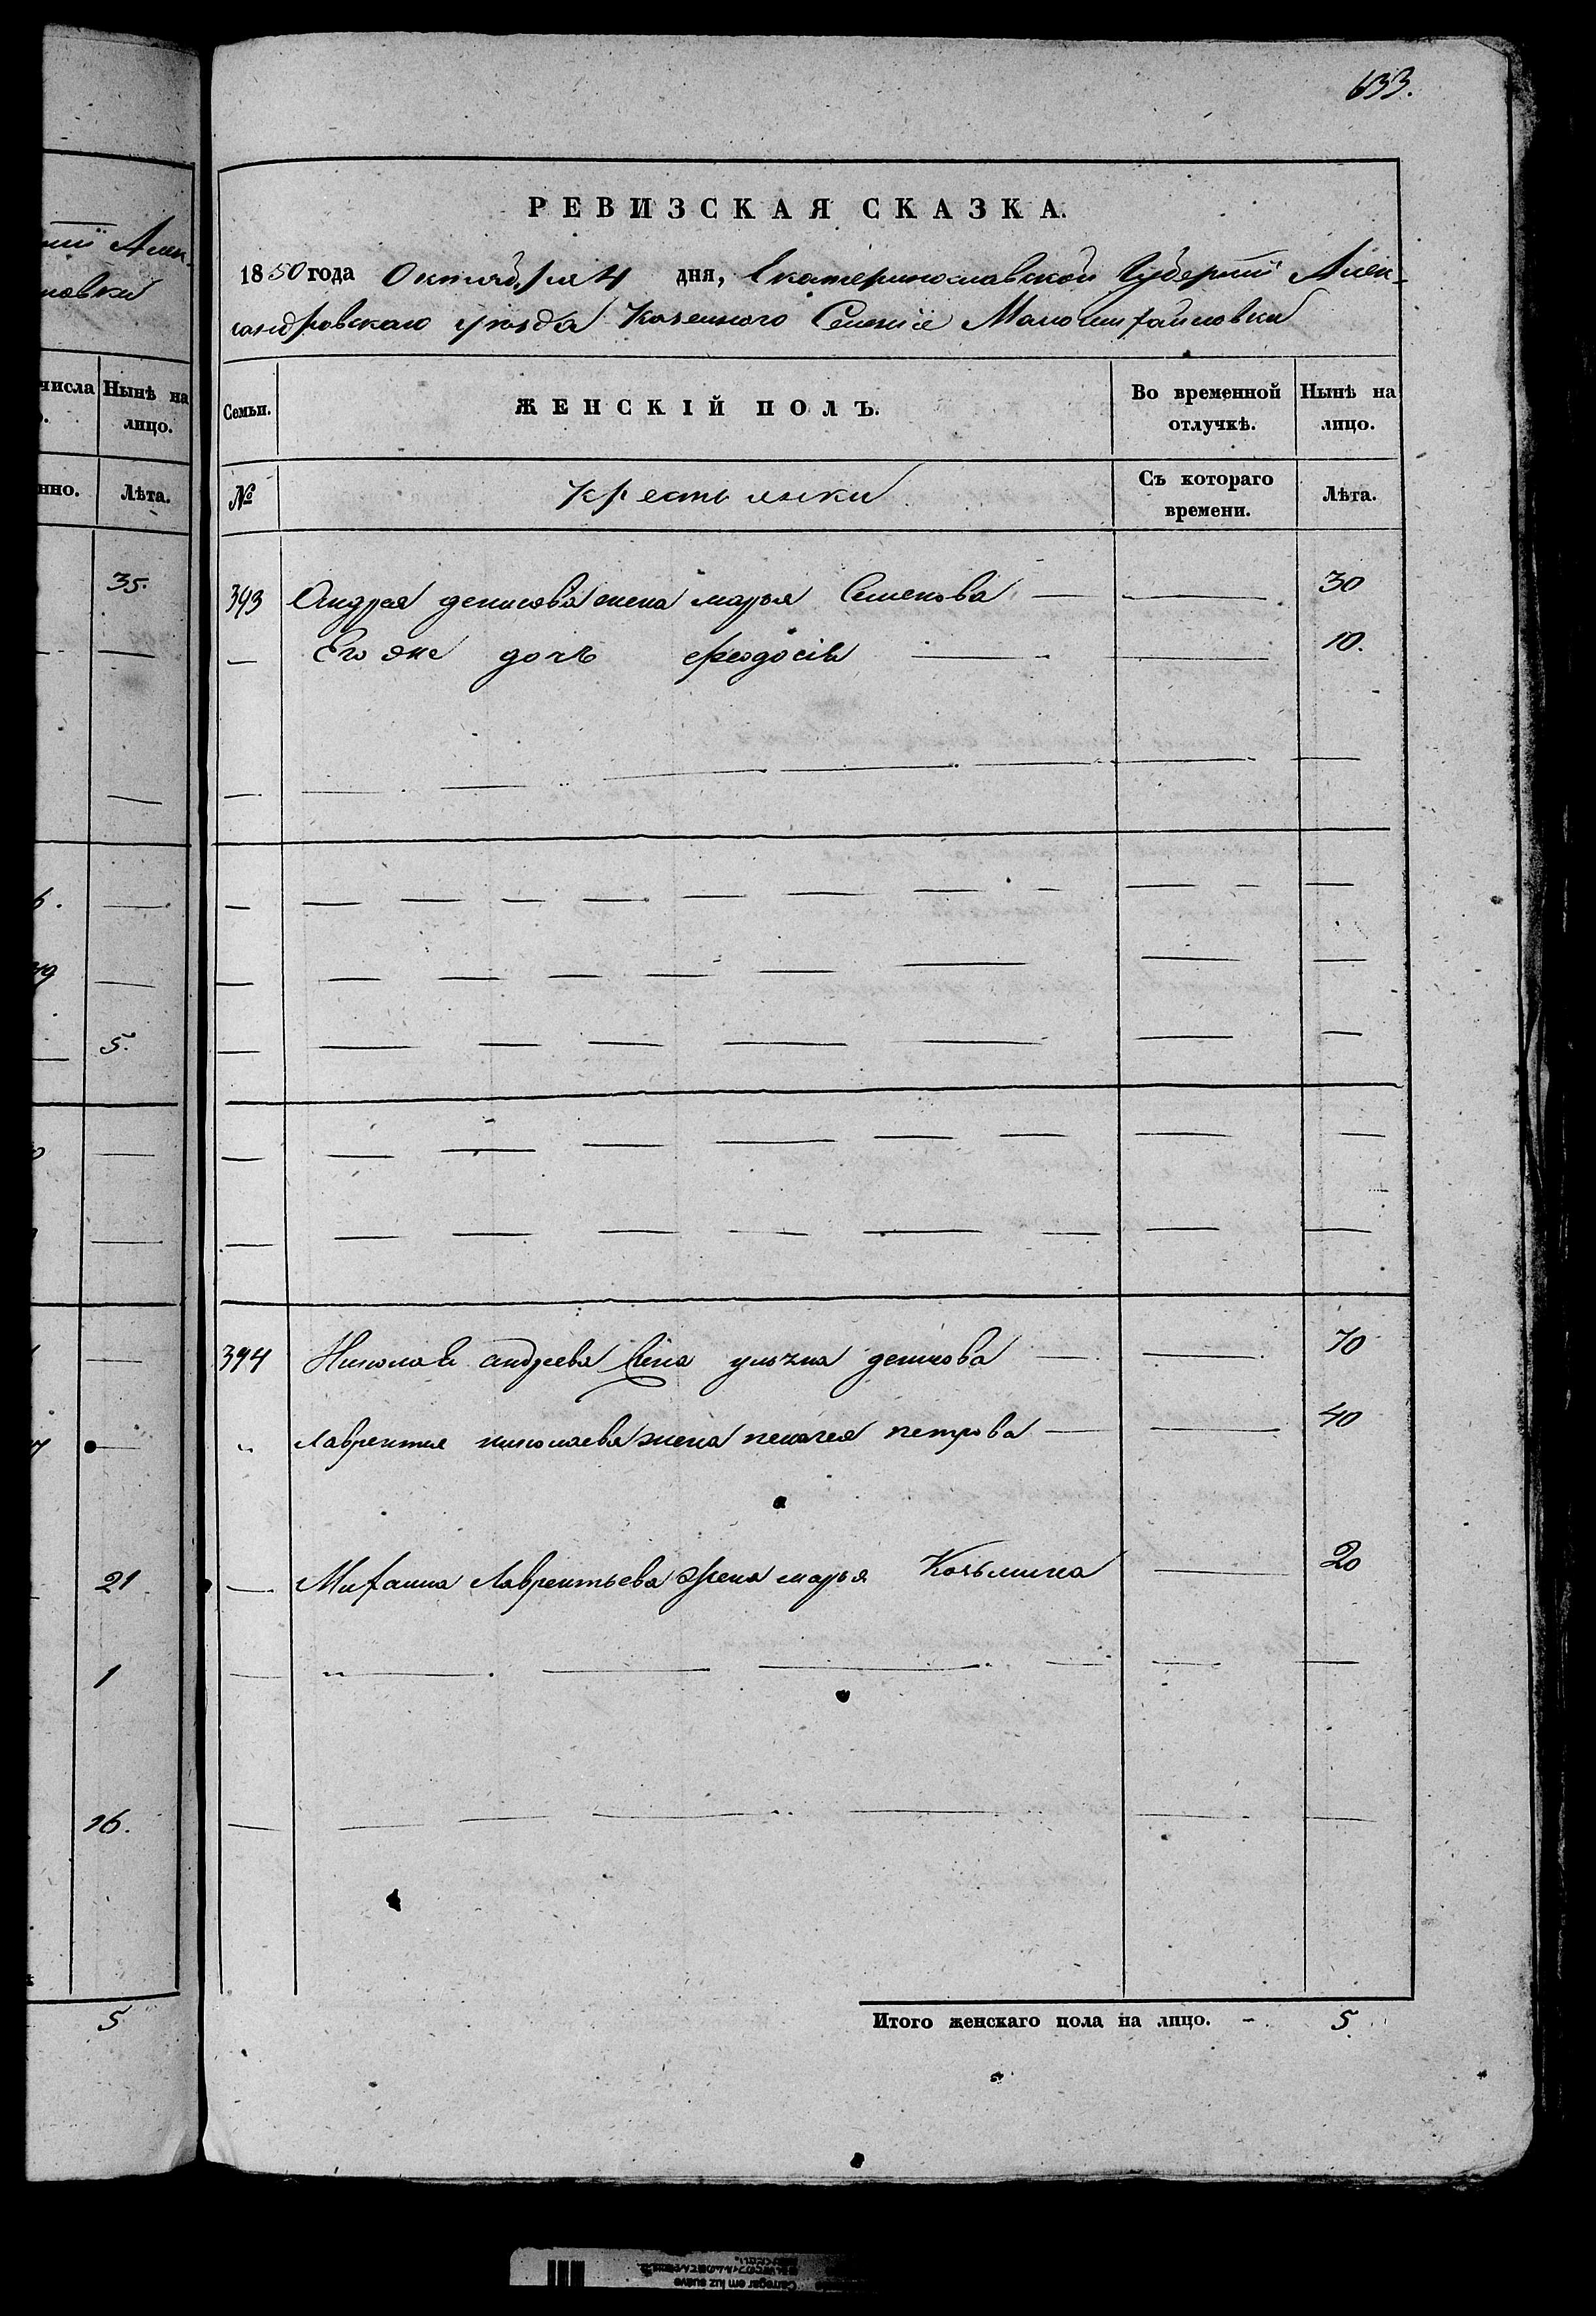 633.
РЕВИЗСКАЯ СКАЗКА.
1850 года Октября 4 дня, Екатеринославской Губернии Алек-
сандровскаго уезда Казенного Селения Маломихайловки
Семьи.
ЖЕНСКІЙ ПОЛЪ.
Во временной отлучкѣ.
Нынѣ на лицо.
№
Крестьянки
Съ котораго времени.
Лѣта.
393 Андрея денисова жена марья Семенова — — 30
— Его же дочь феодосія — — 10.
394 Николая андреева жена ульяна денисова — — 70
„ лаврентия николаева жена пелагея петрова — — 40
— Михаила Лаврентьева Жена марья Козьмина — 20
Итого женскаго пола на лицо. - 5.
ии Алек-
ловки
числа
Нынѣ на лицо.
нно.
Лѣта.
35.
5.
21
1
16.
5